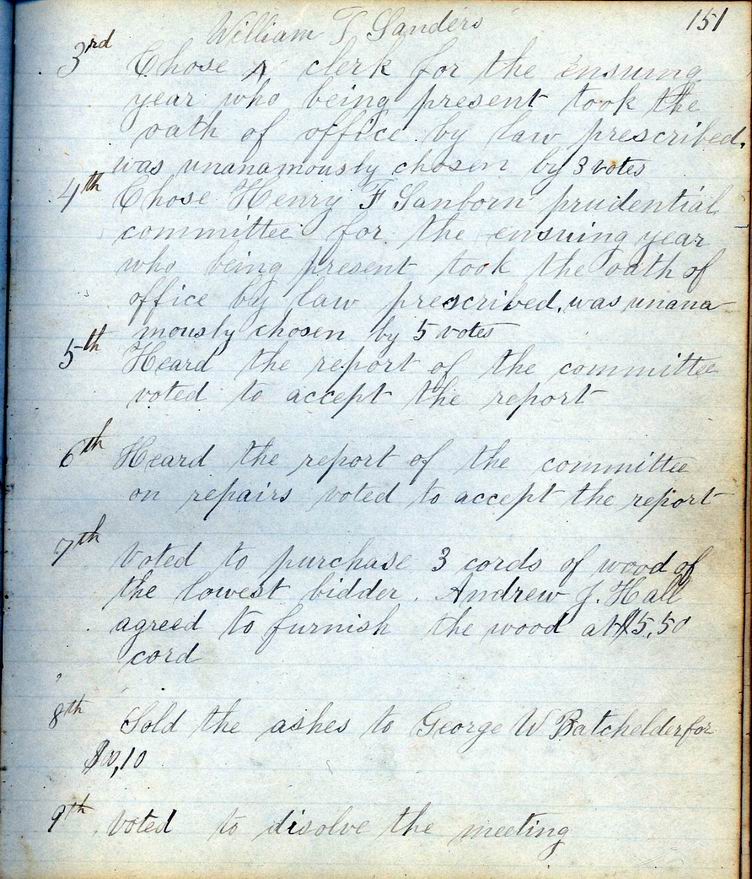 151
William T Sanders
3rd Chose ^ clerk for the ensuing
year who being present took the
oath of office by law prescribed.
was unanamously chosen by 3 votes
4th Chose Henry F Sanborn prudential
committee for the ensuing year
who being present took the oath of
office by law prescribed. was unana
mously chosen by 5 votes
5th Heard the report of the committee
voted to accept the report
6th Heard the report of the committee
on repairs voted to accept the report
7th voted to purchase 3 cords of wood of
the lowest bidder. Andrew J. Hall
agreed to furnish the wood at $5,50
cord
8th Sold the ashes to George W Batchelder for
,10
9th voted to disolve the meeting